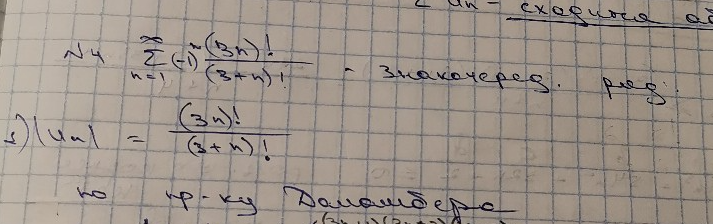 Σ Un - сходится аб
N4 ∞ Σ n=1 (-1)^n (3n)! / (3+n)! - знакочеред. ряд.
1) |Un| = (3n)! / (3+n)!
по пр-ку Даламбера